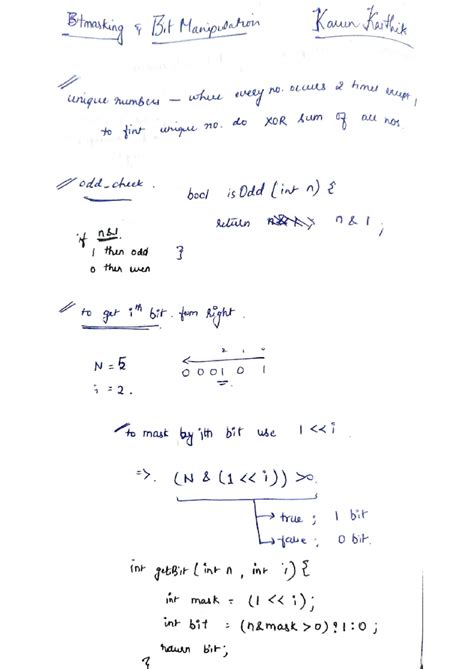 Bitmasking & Bit Manipulation Karun Karthik
unique numbers — where every no. occurs 2 times except 1
to find unique no. do XOR sum of all nos.
odd_check.
bool isOdd (int n) {
return n & 1 ;
}
if n&1
1 then odd
0 then even
to get ith bit. from right.
N = 5
i = 2.
2 1 0
0 0 0 1 0 1
to mask by ith bit use 1 << i
=>. (N & (1 << i)) >0.
true ; 1 bit
false ; 0 bit.
int getBit (int n , int i) {
int mask = (1 << i);
int bit = (n&mask > 0) ? 1 : 0 ;
return bit;
}